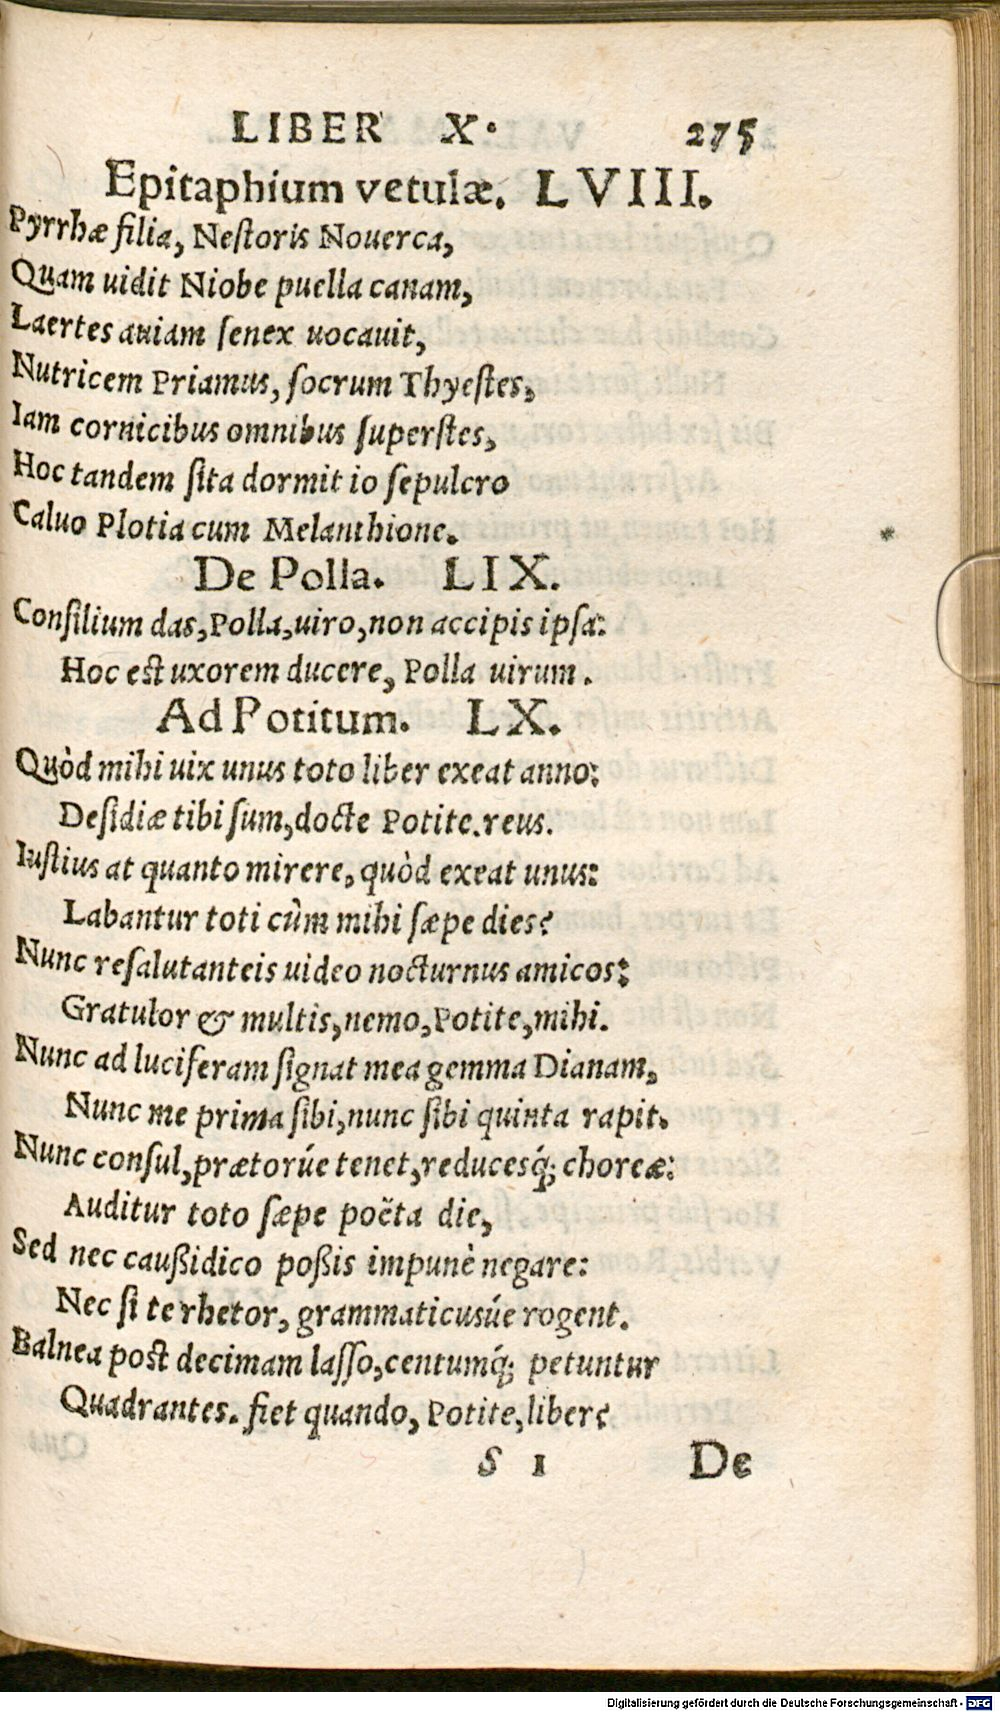 LIBER X. 275
Epitaphium vetulæ. LVIII.
Pyrrhæ filia, Neſtoris Nouerca,
Quam uidit Niobe puella canam,
Laertes auiam ſenex uocauit,
Nutricem Priamus, ſocrum Thyeſtes,
Iam cornicibus omnibus ſuperſtes,
Hoc tandem ſita dormit io ſepulcro
Caluo Plotia cum Melanthione.
De Polla. LIX.
Conſilium das, Polla, uiro, non accipis ipſa:
Hoc est uxorem ducere, Polla uirum.
Ad Potitum. LX.
Quòd mihi uix unus toto liber exeat anno:
Deſidiæ tibi ſum, docte Potite. reus.
Iuſtius at quanto mirere, quòd exeat unus:
Labantur toti cùm mihi ſæpe dies?
Nunc reſalutanteis uideo nocturnus amicos:
Gratulor & multis, nemo, Potite, mihi.
Nunc ad luciferam ſignat mea gemma Dianam,
Nunc me prima ſibi, nunc ſibi quinta rapit.
Nunc conſul, prætorúe tenet, reducesq́; choreæ:
Auditur toto ſæpe poëta die,
Sed nec caußidico poßis impunè negare:
Nec ſi te rhetor, grammaticusúe rogent.
Balnea post decimam laſſo, centumq́; petuntur
Quadrantes. fiet quando, Potite, liber?
S 1 De
Digitalisierung gefördert durch die Deutsche Forschungsgemeinschaft - DFG